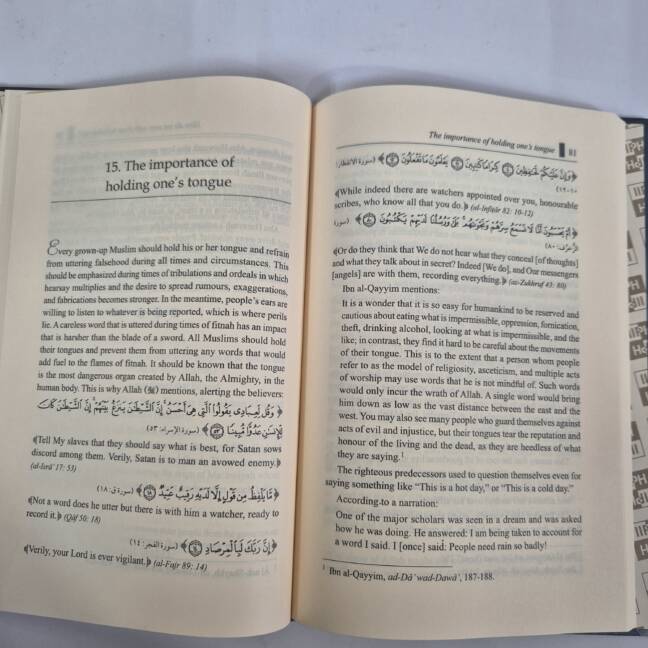 15. The importance of
holding one's tongue
Every grown-up Muslim should hold his or her tongue and refrain
from uttering falsehood during all times and circumstances. This
should be emphasized during times of tribulations and ordeals in which
hearsay multiplies and the desire to spread rumours, exaggerations,
and fabrications becomes stronger. In the meantime, people's ears are
willing to listen to whatever is being reported, which is where perils
lie. A careless word that is uttered during times of fitnah has an impact
that is harsher than the blade of a sword. All Muslims should hold
their tongues and prevent them from uttering any words that would
add fuel to the flames of fitnah. It should be known that the tongue
is the most dangerous organ created by Allah, the Almighty, in the
human body. This is why Allah (ﷻ) mentions, alerting the believers:
﴿وَقُل لِّعِبَادِى يَقُولُوا۟ ٱلَّتِى هِىَ أَحْسَنُ ۚ إِنَّ ٱلشَّيْطَٰنَ يَنزَغُ بَيْنَهُمْ ۚ إِنَّ ٱلشَّيْطَٰنَ كَانَ
لِلْإِنسَٰنِ عَدُوًّا مُّبِينًا ٥٣﴾ (سورة الإسراء: ٥٣)
﴾Tell My slaves that they should say what is best, for Satan sows
discord among them. Verily, Satan is to man an avowed enemy.﴿
(al-Isrâ' 17: 53)
﴿مَّا يَلْفِظُ مِن قَوْلٍ إِلَّا لَدَيْهِ رَقِيبٌ عَتِيدٌ ١٨﴾ (سورة ق: ١٨)
﴾Not a word does he utter but there is with him a watcher, ready to
record it.﴿ (Qâf 50: 18)
﴿إِنَّ رَبَّكَ لَبِٱلْمِرْصَادِ ١٤﴾ (سورة الفجر: ١٤)
﴾Verily, your Lord is ever vigilant.﴿ (al-Fajr 89: 14)
The importance of holding one's tongue 81
﴿وَإِنَّ عَلَيْكُمْ لَحَٰفِظِينَ ١٠ كِرَامًا كَٰتِبِينَ ١١ يَعْلَمُونَ مَا تَفْعَلُونَ ١٢﴾ (سورة الانفطار:
١٠-١٢)
﴾While indeed there are watchers appointed over you, honourable
scribes, who know all that you do.﴿ (al-Infiṭâr 82: 10-12)
﴿أَمْ يَحْسَبُونَ أَنَّا لَا نَسْمَعُ سِرَّهُمْ وَنَجْوَىٰهُم ۚ بَلَىٰ وَرُسُلُنَا لَدَيْهِمْ يَكْتُبُونَ ٨٠﴾ (سورة
الزخرف: ٨٠)
﴾Or do they think that We do not hear what they conceal [of thoughts]
and what they talk about in secret? Indeed [We do], and Our messengers
[angels] are with them, recording everything.﴿ (az-Zukhruf 43: 80)
Ibn al-Qayyim mentions:
It is a wonder that it is so easy for humankind to be reserved and
cautious about eating what is impermissible, oppression, fornication,
theft, drinking alcohol, looking at what is impermissible, and the
like; in contrast, they find it hard to be careful about the movements
of their tongue. This is to the extent that a person whom people
refer to as the model of religiosity, asceticism, and multiple acts
of worship may use words that he is not mindful of. Such words
would only incur the wrath of Allah. A single word would bring
him down as low as the vast distance between the east and the
west. You may also see many people who guard themselves against
acts of evil and injustice, but their tongues tear the reputation and
honour of the living and the dead, as they are heedless of what
they are saying.¹
The righteous predecessors used to question themselves even for
saying something like "This is a hot day," or "This is a cold day."
According to a narration:
One of the major scholars was seen in a dream and was asked
how he was doing. He answered: I am being taken to account for
a word I said. I [once] said: People need rain so badly!
¹ Ibn al-Qayyim, ad-Dâ' wad-Dawâ', 187-188.